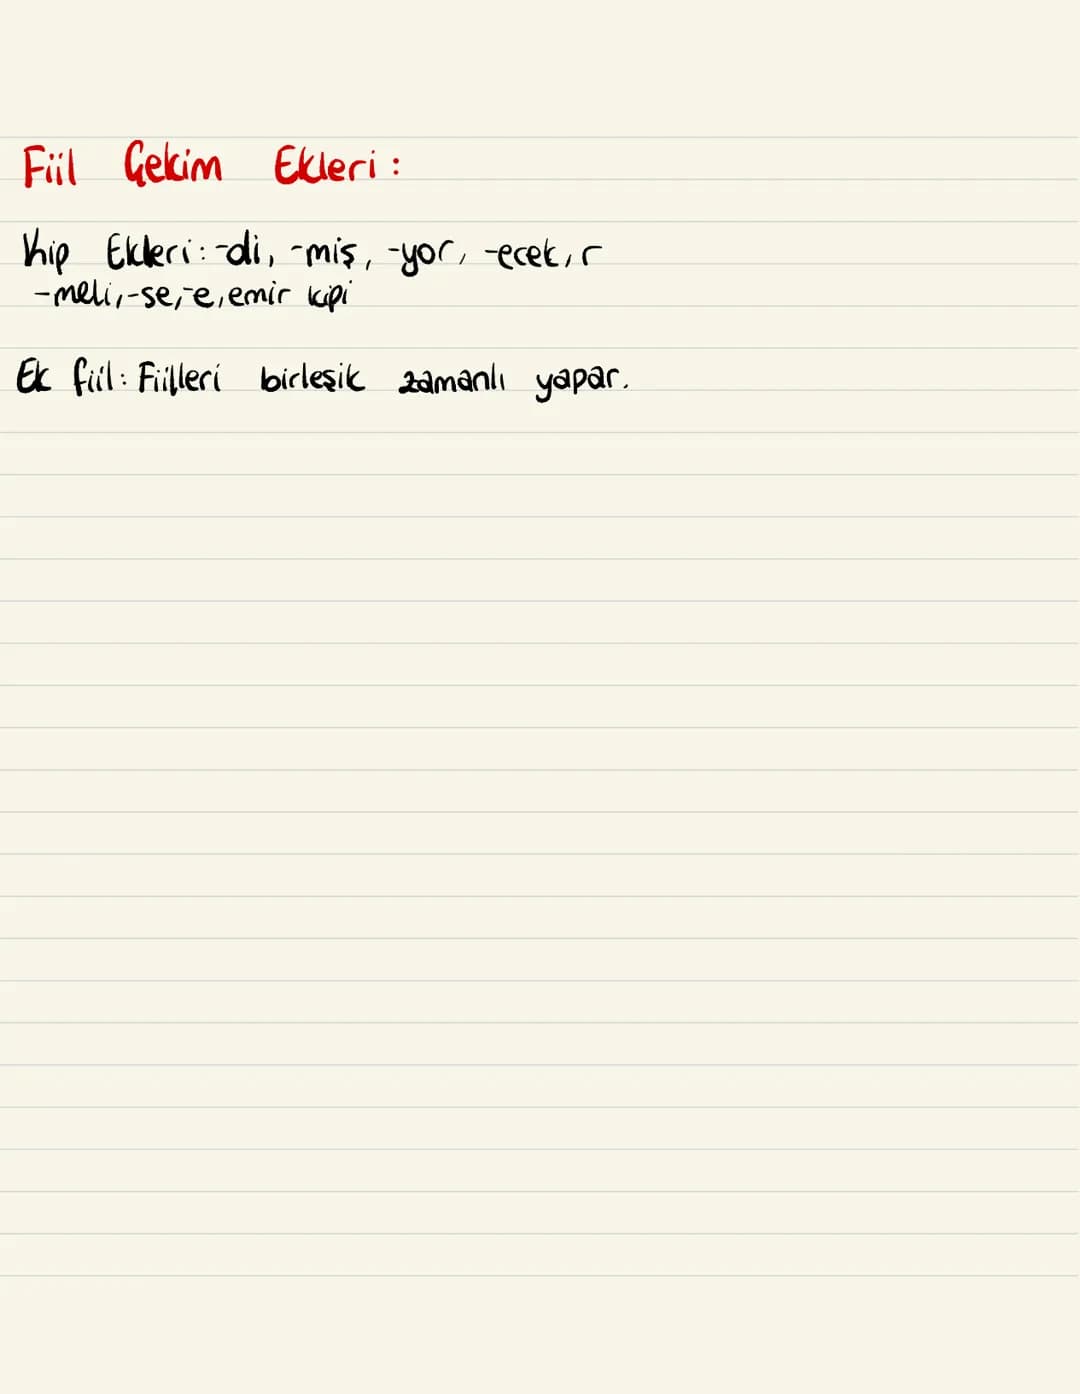 Fiil Çekim Ekleri:
Kip Ekleri: -di, -miş, -yor, -ecek, r
-meli, -se, -e, emir kipi
Ek fiil: Fiilleri birleşik zamanlı yapar.